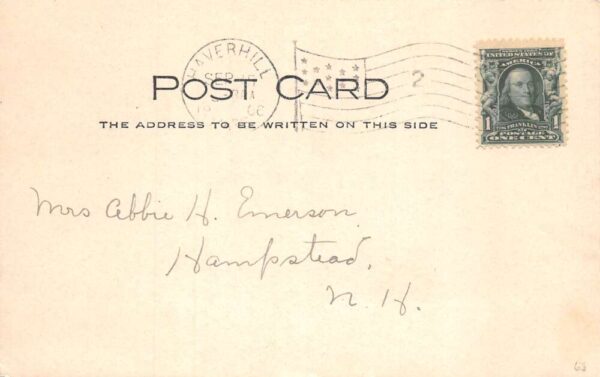 HAVERHILL
SEP
2
POST CARD
THE ADDRESS TO BE WRITTEN ON THIS SIDE
UNITED STATES OF
AMERICA
1 1
FRANKLIN
POSTAGE
ONE CENT
Mrs Abbie H. Emerson
Hampstead,
N. H.
63